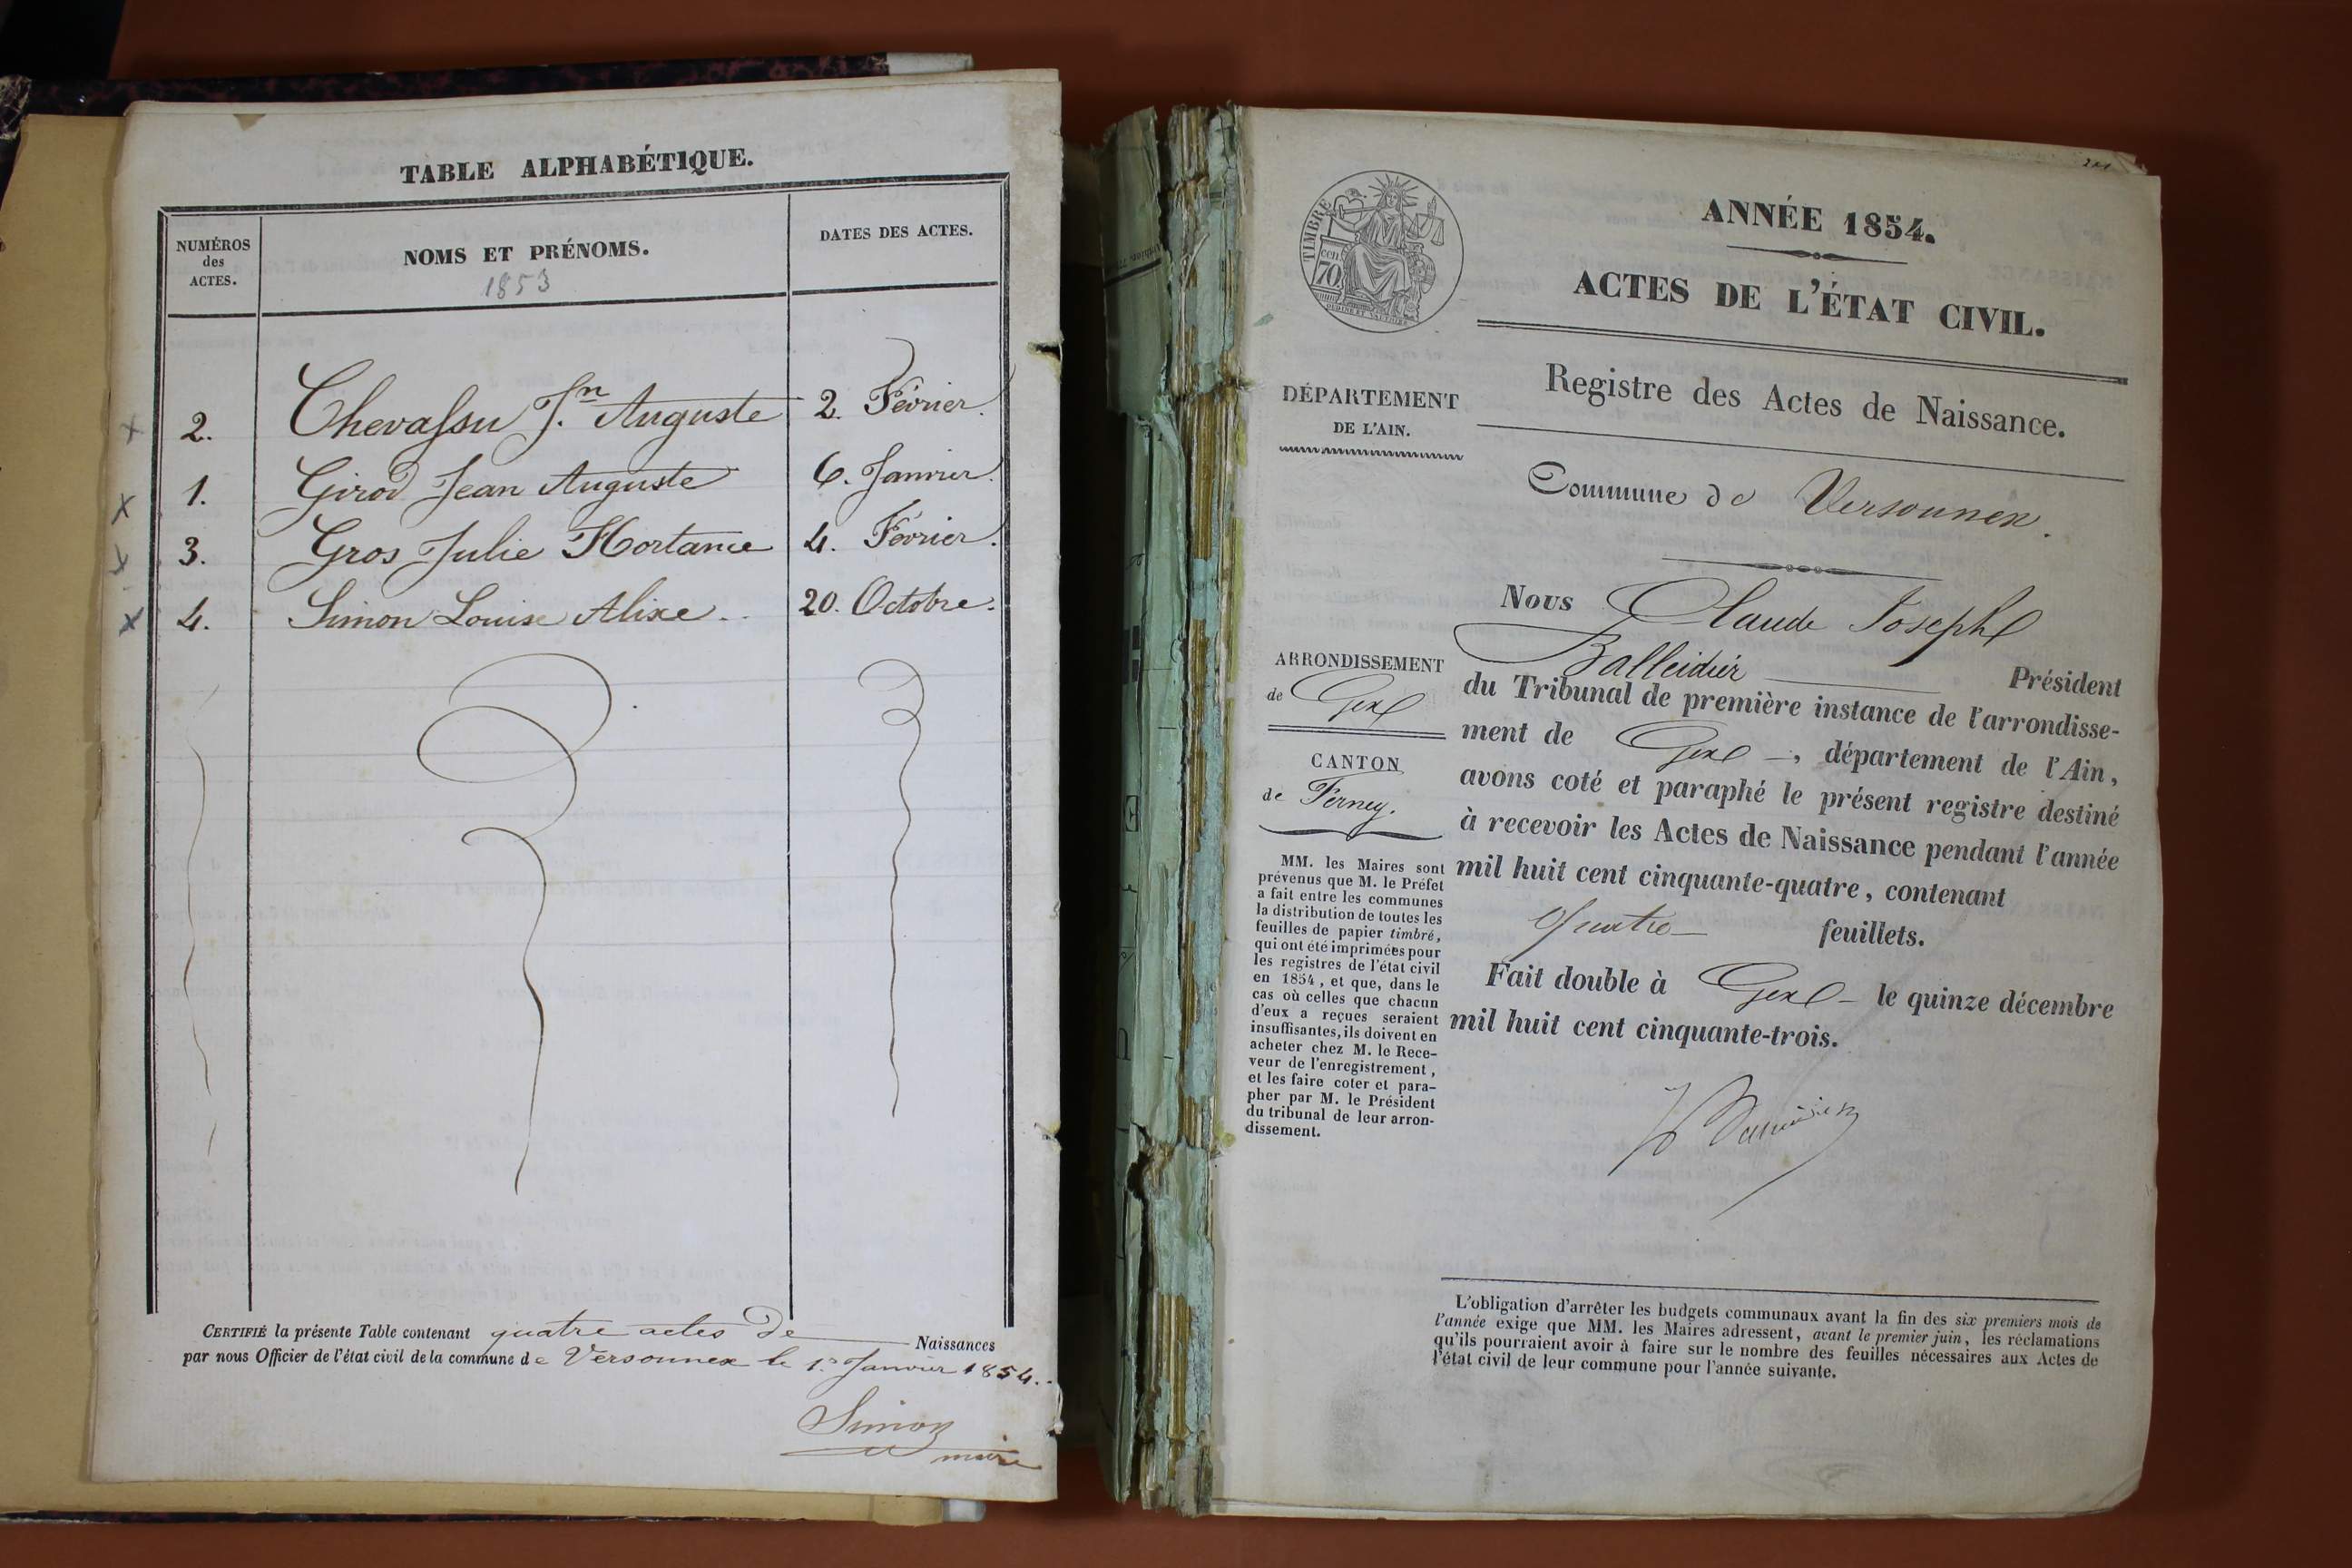 TABLE ALPHABÉTIQUE.
NUMÉROS des ACTES.
NOMS ET PRÉNOMS.
1853
DATES DES ACTES.
2. Chevassu Jn. Auguste 2. Février.
1. Girod Jean Auguste 6. Janvier.
3. Gros Julie Hortance 4. Février.
4. Simon Louise Alixe.. 20. Octobre.
CERTIFIÉ la présente Table contenant quatre actes de Naissances
par nous Officier de l'état civil de la commune de Versonnex le 1er Janvier 1854.
Simon
maire
ANNÉE 1854.
TIMBRE
70
cen.
ACTES DE L'ÉTAT CIVIL.
DÉPARTEMENT
DE L'AIN.
Registre des Actes de Naissance.
Commune de Versonnex.
ARRONDISSEMENT
de Gex
CANTON
de Ferney.
MM. les Maires sont
prévenus que M. le Préfet
a fait entre les communes
la distribution de toutes les
feuilles de papier timbré,
qui ont été imprimées pour
les registres de l'état civil
en 1854, et que, dans le
cas où celles que chacun
d'eux a reçues seraient
insuffisantes, ils doivent en
acheter chez M. le Rece-
veur de l'enregistrement,
et les faire coter et para-
pher par M. le Président
du tribunal de leur arron-
dissement.
Nous Claude Joseph
Balleidier Président
du Tribunal de première instance de l'arrondisse-
ment de Gex, département de l'Ain,
avons coté et paraphé le présent registre destiné
à recevoir les Actes de Naissance pendant l'année
mil huit cent cinquante-quatre, contenant
quatre feuillets.
Fait double à Gex le quinze décembre
mil huit cent cinquante-trois.
L'obligation d'arrêter les budgets communaux avant la fin des six premiers mois de
l'année exige que MM. les Maires adressent, avant le premier juin, les réclamations
qu'ils pourraient avoir à faire sur le nombre des feuilles nécessaires aux Actes de
l'état civil de leur commune pour l'année suivante.